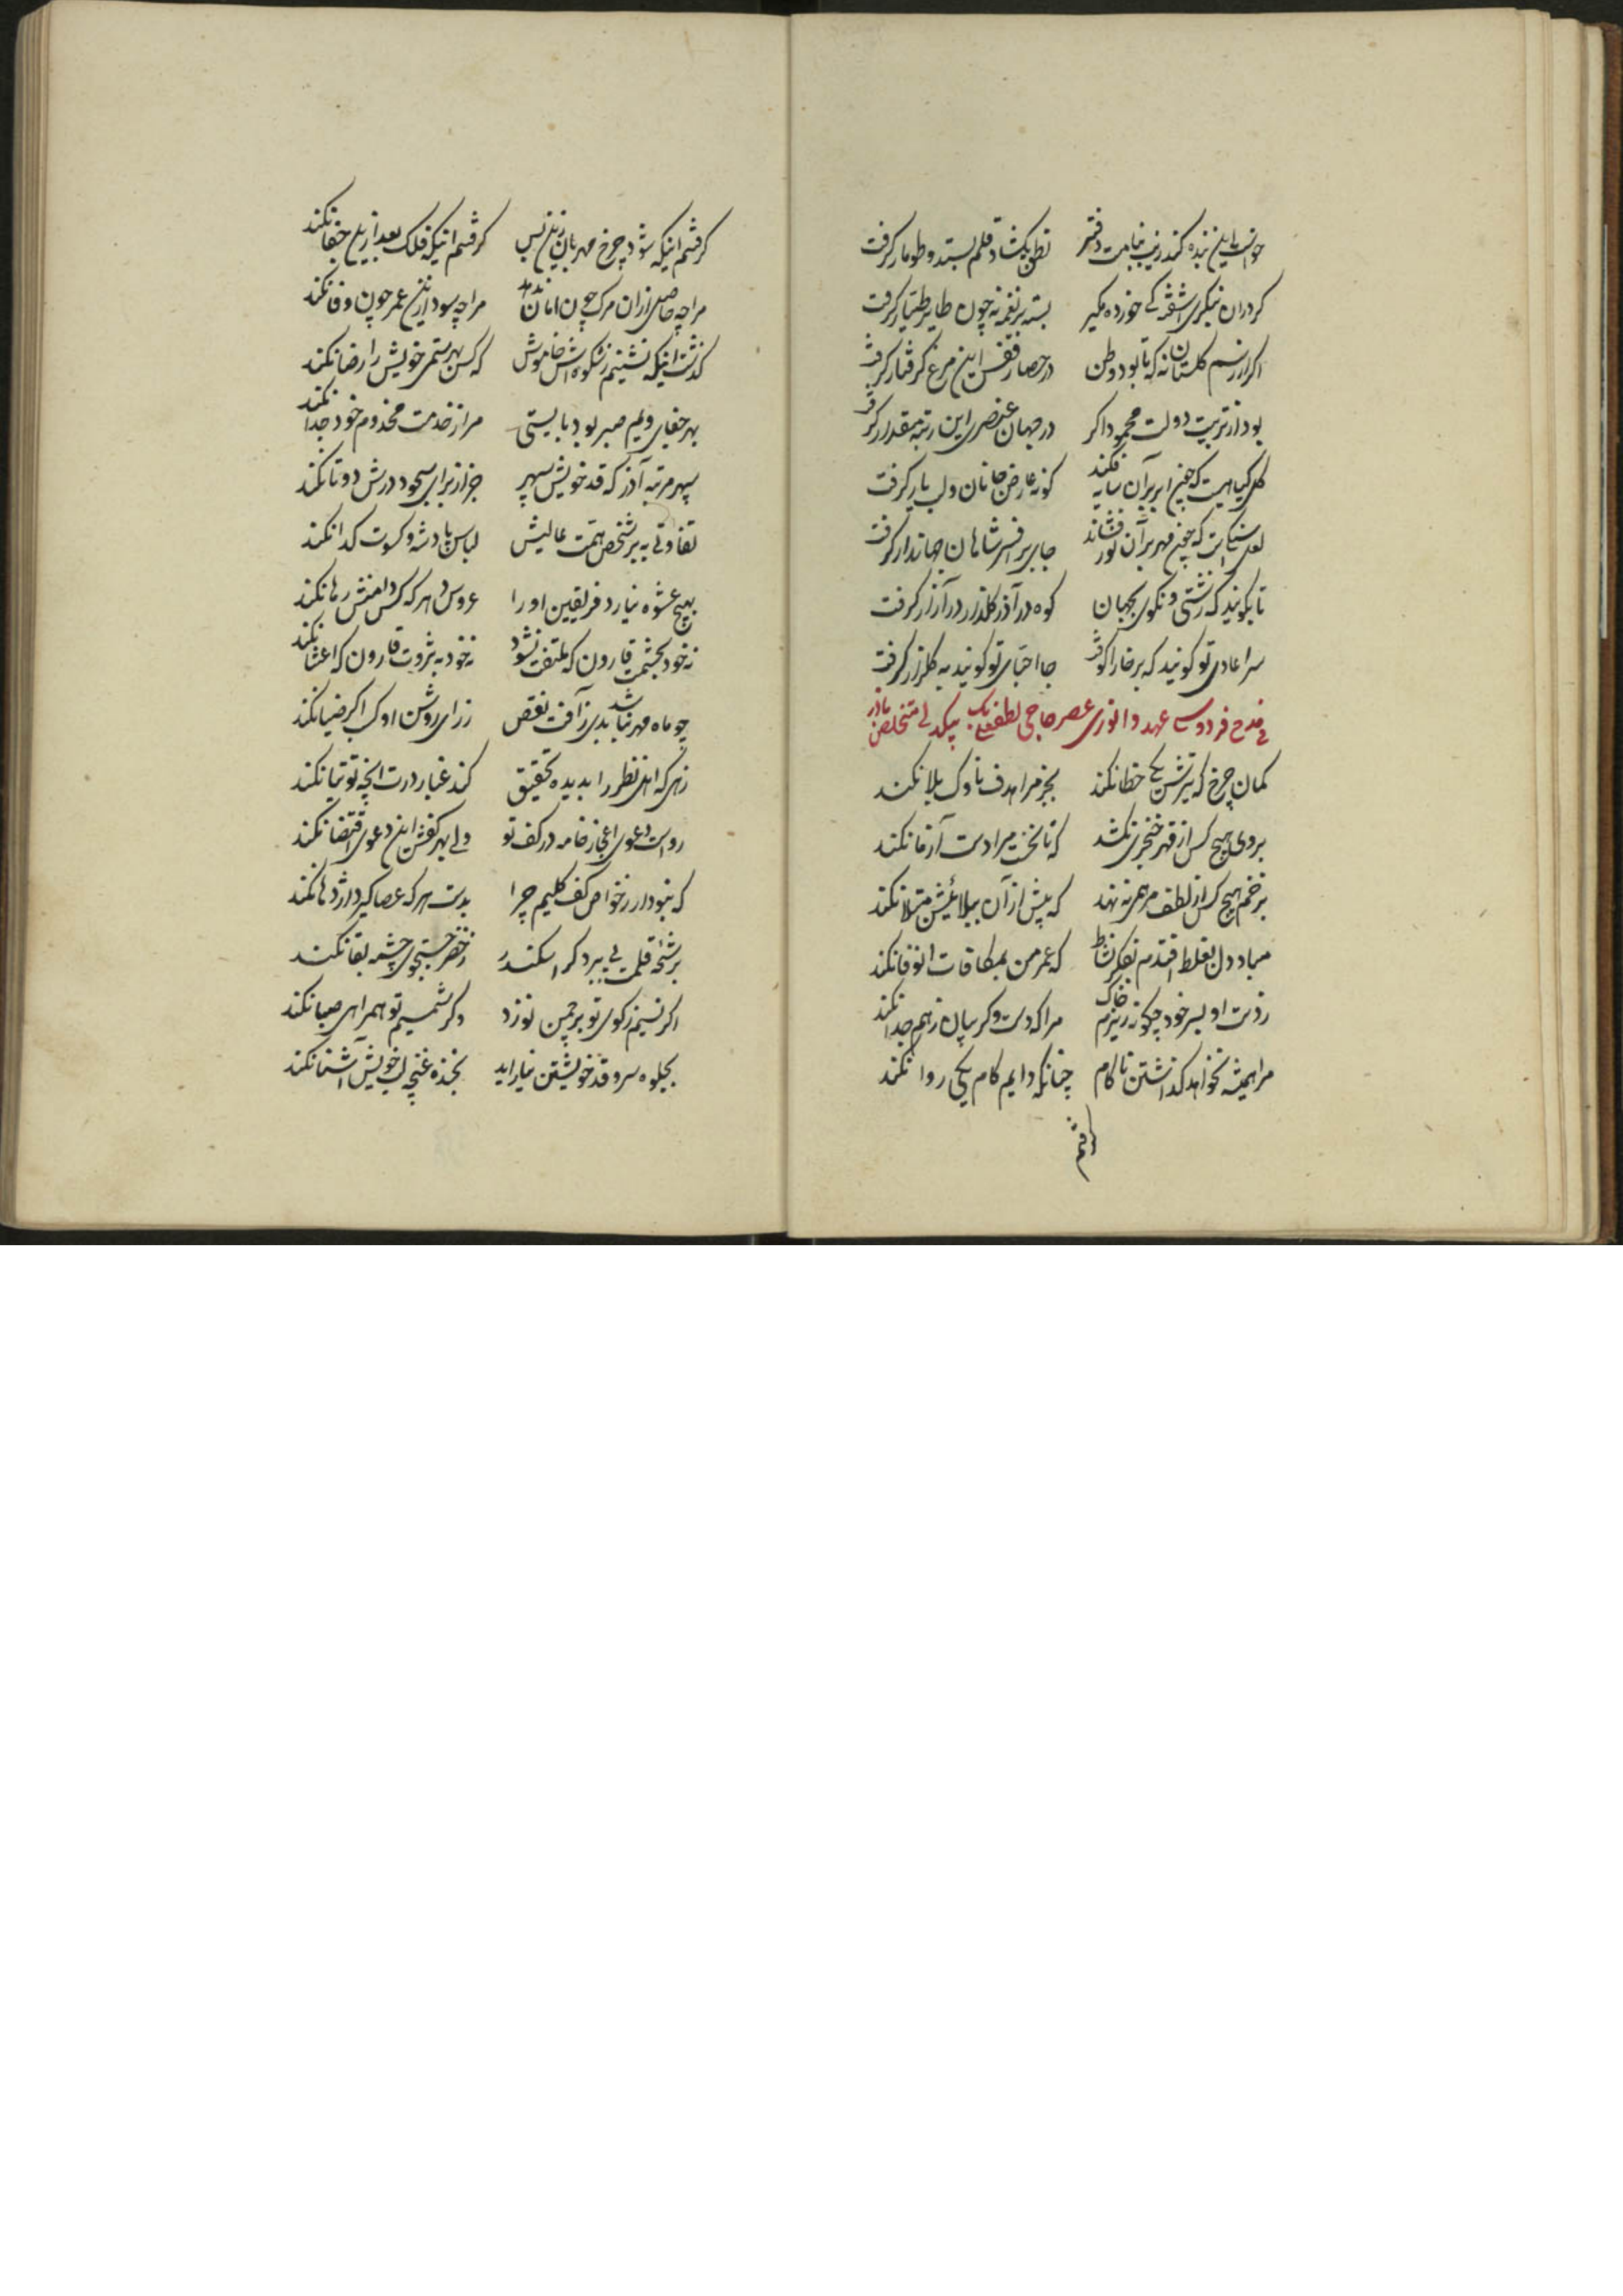 خواست این بنده کند زیب ثنایت دفتر نطق بگشاد قلم بستد و طومار گرفت
گر در آن بنگری آشفتگی خورده مگیر بسته پر نغمه نه چون طایر طیار گرفت
اگر از رسم گلستان نه که تا بود وطن در حصار قفس این مرغ گرفتار گرفت
بود از تربیت دولت محمود اگر در جهان عنصری این رتبه و مقدار گرفت
گل گیاهیست که چون ابر بر آن سایه فکند گونه عارض جانان و لب یار گرفت
لعل سنگیست که چون مهر بر آن نور فشاند جای بر افسر شاهان جهاندار گرفت
تا بگویند که زشتی و نکوی بجهان کوه در آذر گلذار در آزار گرفت
سر اعادی تو گویند که بر خارا کوفت جا احبای تو گویند به گلزار گرفت
فی مدح فردوسی عهد و انوری عصر حاجی لطفعلی بیک بیکدلی متخلص بآذر
کمان چرخ که تیرش یکی خطا نکند بجز مرا هدف ناوک بلا نکند
بروی هیچ کس از قهر خنجری نکشد که تا نخست مرا دست آزما نکند
بزخم هیچ کس از لطف مرهمی ننهد که پیش از آن ببلائیش مبتلا نکند
مباد دل بغلط افتدم بفکر نشاط که عمر من بمکافات او وفا نکند
ز دست او بسر خود چگونه ریزم خاک مرا که دست و گریبان ز هم جدا نکند
مرا همیشه نخواهد گذاشتن ناکام چنانکه دایم کام یکی روا نکند
گرفتم
گرفتم اینکه شود چرخ مهربان زین پس گرفتم اینکه فلک بعد ازین جفا نکند
مرا چه حاصل از آن مرگ چون امان ندهد مرا چه سود ازین عمر چون وفا نکند
گذشت اینکه نشینم ز شکوه‌اش خاموش که کس بهر ستمی خویش را رضا نکند
بهر جفای ویم صبر بود بایستی مرا ز خدمت مخدوم خود جدا نکند
سپهر مرتبه آذر که قد خویش سپهر جز از برای سجود درش دوتا نکند
تفاوتی به بر شخص همت عالیش لباس پادشه و کسوت گدا نکند
بهیچ عشوه نیارد فریفتن او را عروس دهر که کس دامنش رها نکند
نه خود بحشمت قارون که ملتفت نشود نه خود به ثروت قارون که اعتنا نکند
چو ماه مهر نباشد بری ز آفت نقص ز رای روشن او کسب اگر ضیا نکند
زهی که اهل نظر را بدیده تحقیق کند غبار درت آنچه توتیا نکند
رواست دعوی اعجاز خامه در کف تو ولی بهر کفش این دعوی اقتضا نکند
که نبود ار ز خواص کف کلیم چرا بدست هر که عصا گیرد اژدها نکند
برشحه قلمت پی برد گر اسکندر ز خضر جستجوی چشمه بقا نکند
اگر نسیم ز کوی تو بر چمن نوزد وگر شمیم تو همراهی صبا نکند
بجلوه سرو قد خویشتن نیاراید بخنده غنچه لب خویش آشنا نکند